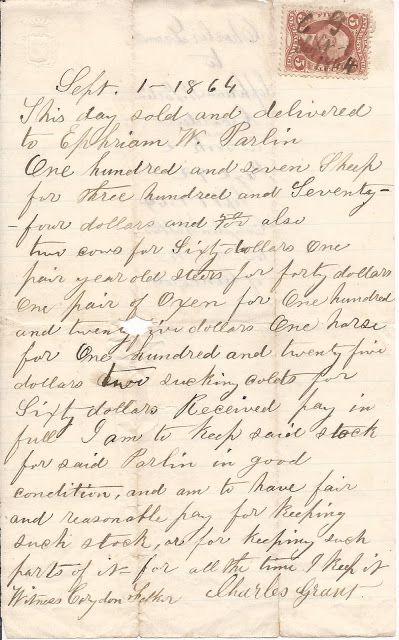 Sept. 1 - 1864
This day sold and delivered
to Ephriam W. Parlin
One hundred and seven Sheep
for three hundred and Seventy-
-four dollars and also
two cows for Sixty dollars One
pair year old steers for forty dollars
One pair of Oxen for One hundred
and twenty five dollars One horse
for One hundred and twenty five
dollars two sucking colts for
Sixty dollars Received pay in
full I am to keep said stock
for said Parlin in good
condition, and am to have fair
and reasonable pay for keeping
such stock, or for keeping such
parts of it - for all the time I keep it
Witness Corydon Charles Grant.